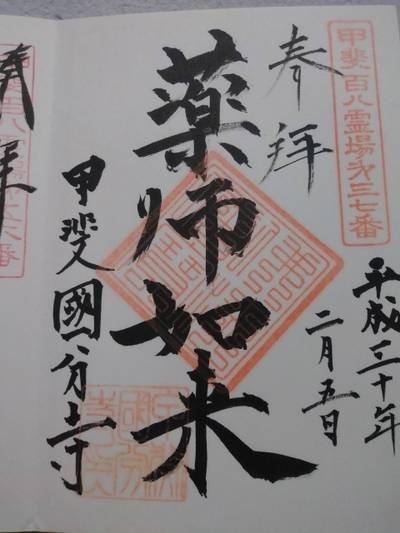 甲斐百八霊場第三七番
奉拝
平成三十年
二月五日
薬师如来
甲斐國分寺
奉拝